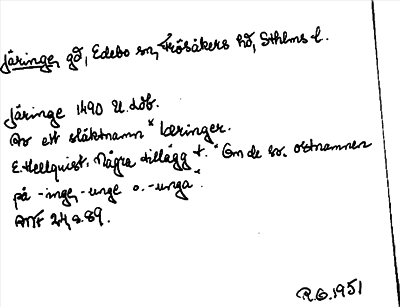 Järinge, gd, Edebo sn, Frösåkers hd, Sthlms l.
Järinge 1490 U.dåb.
Av ett släktnamn * læringer.
E. Hellquist, Några tillägg t. "Om de sv. ortnamnen
på -inge, -unge o. -unga".
ANF 24, s. 89.
R.G. 1951